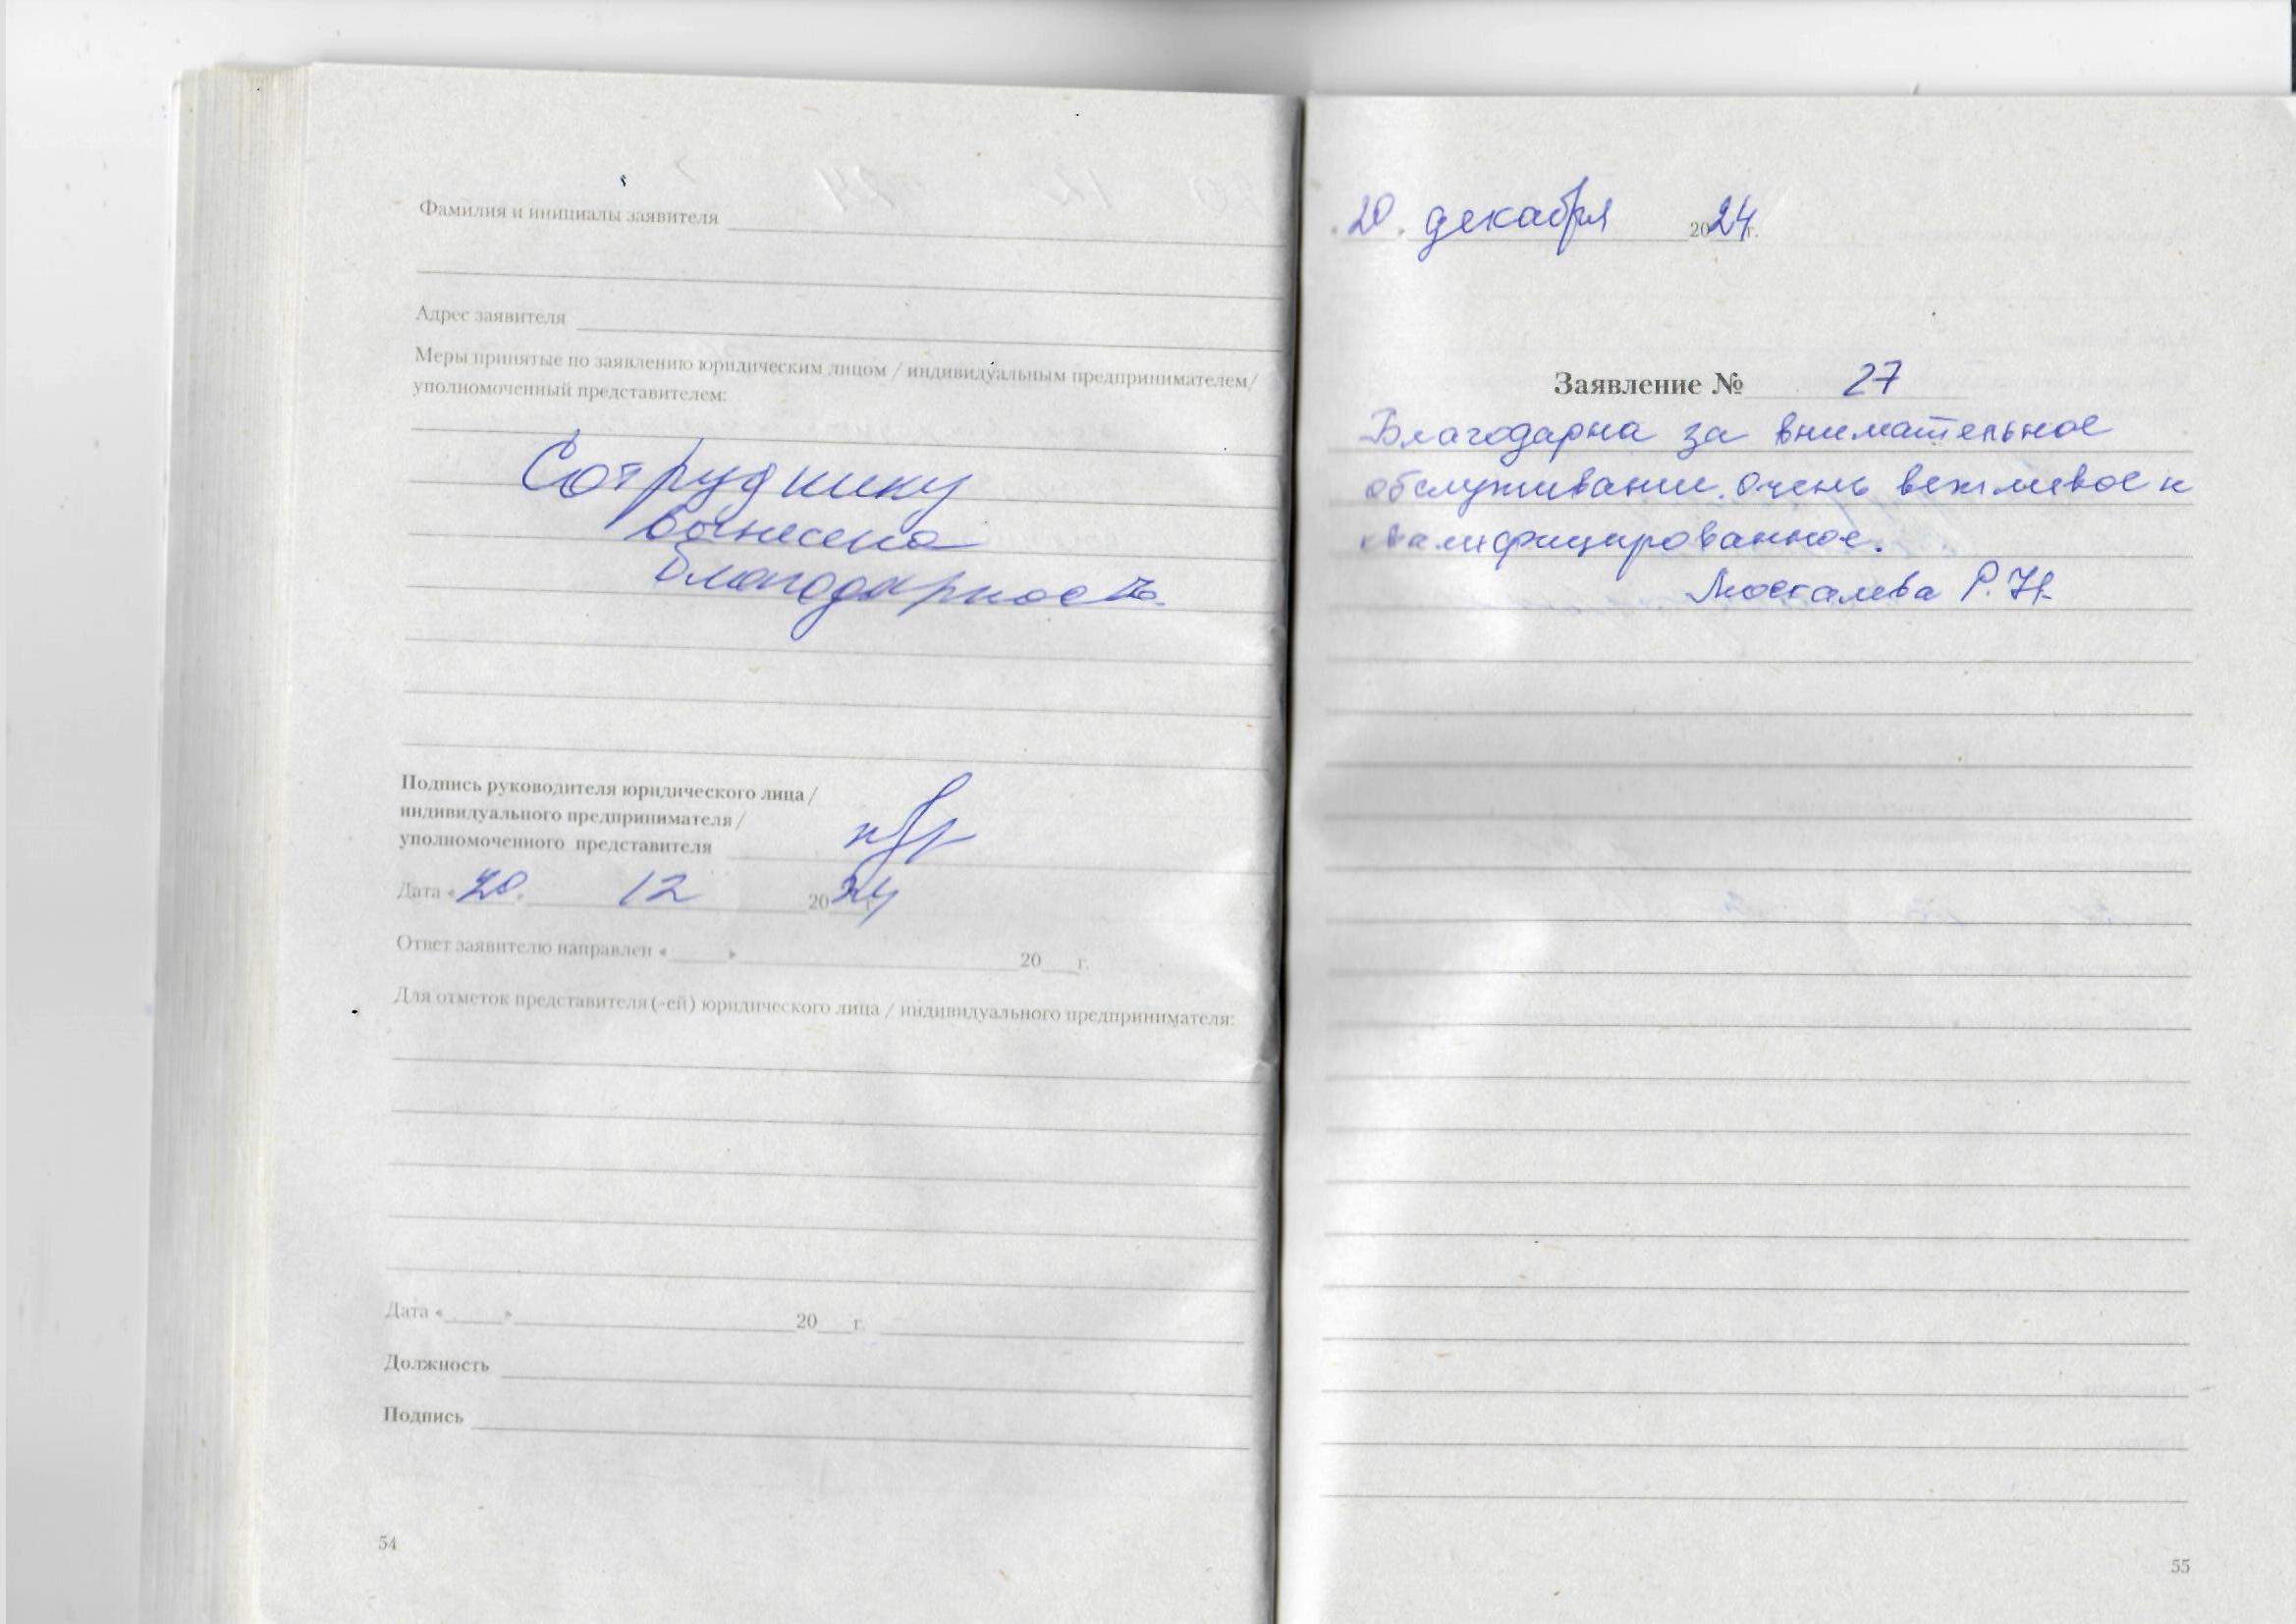 Фамилия и инициалы заявителя
Адрес заявителя
Меры принятые по заявлению юридическим лицом / индивидуальным предпринимателем/
уполномоченный представителем:
Сотруднику
вынесена
благодарность.
Подпись руководителя юридического лица /
индивидуального предпринимателя /
уполномоченного представителя
Дата « 20. 12 2024 г.
Ответ заявителю направлен « » 20 г.
Для отметок представителя (-ей) юридического лица / индивидуального предпринимателя:
Дата « » 20 г.
Должность
Подпись
54
20. декабря 2024 г.
Заявление № 27
Благодарна за внимательное
обслуживание. Очень вежливое и
квалифицированное.
Р. Н.
55